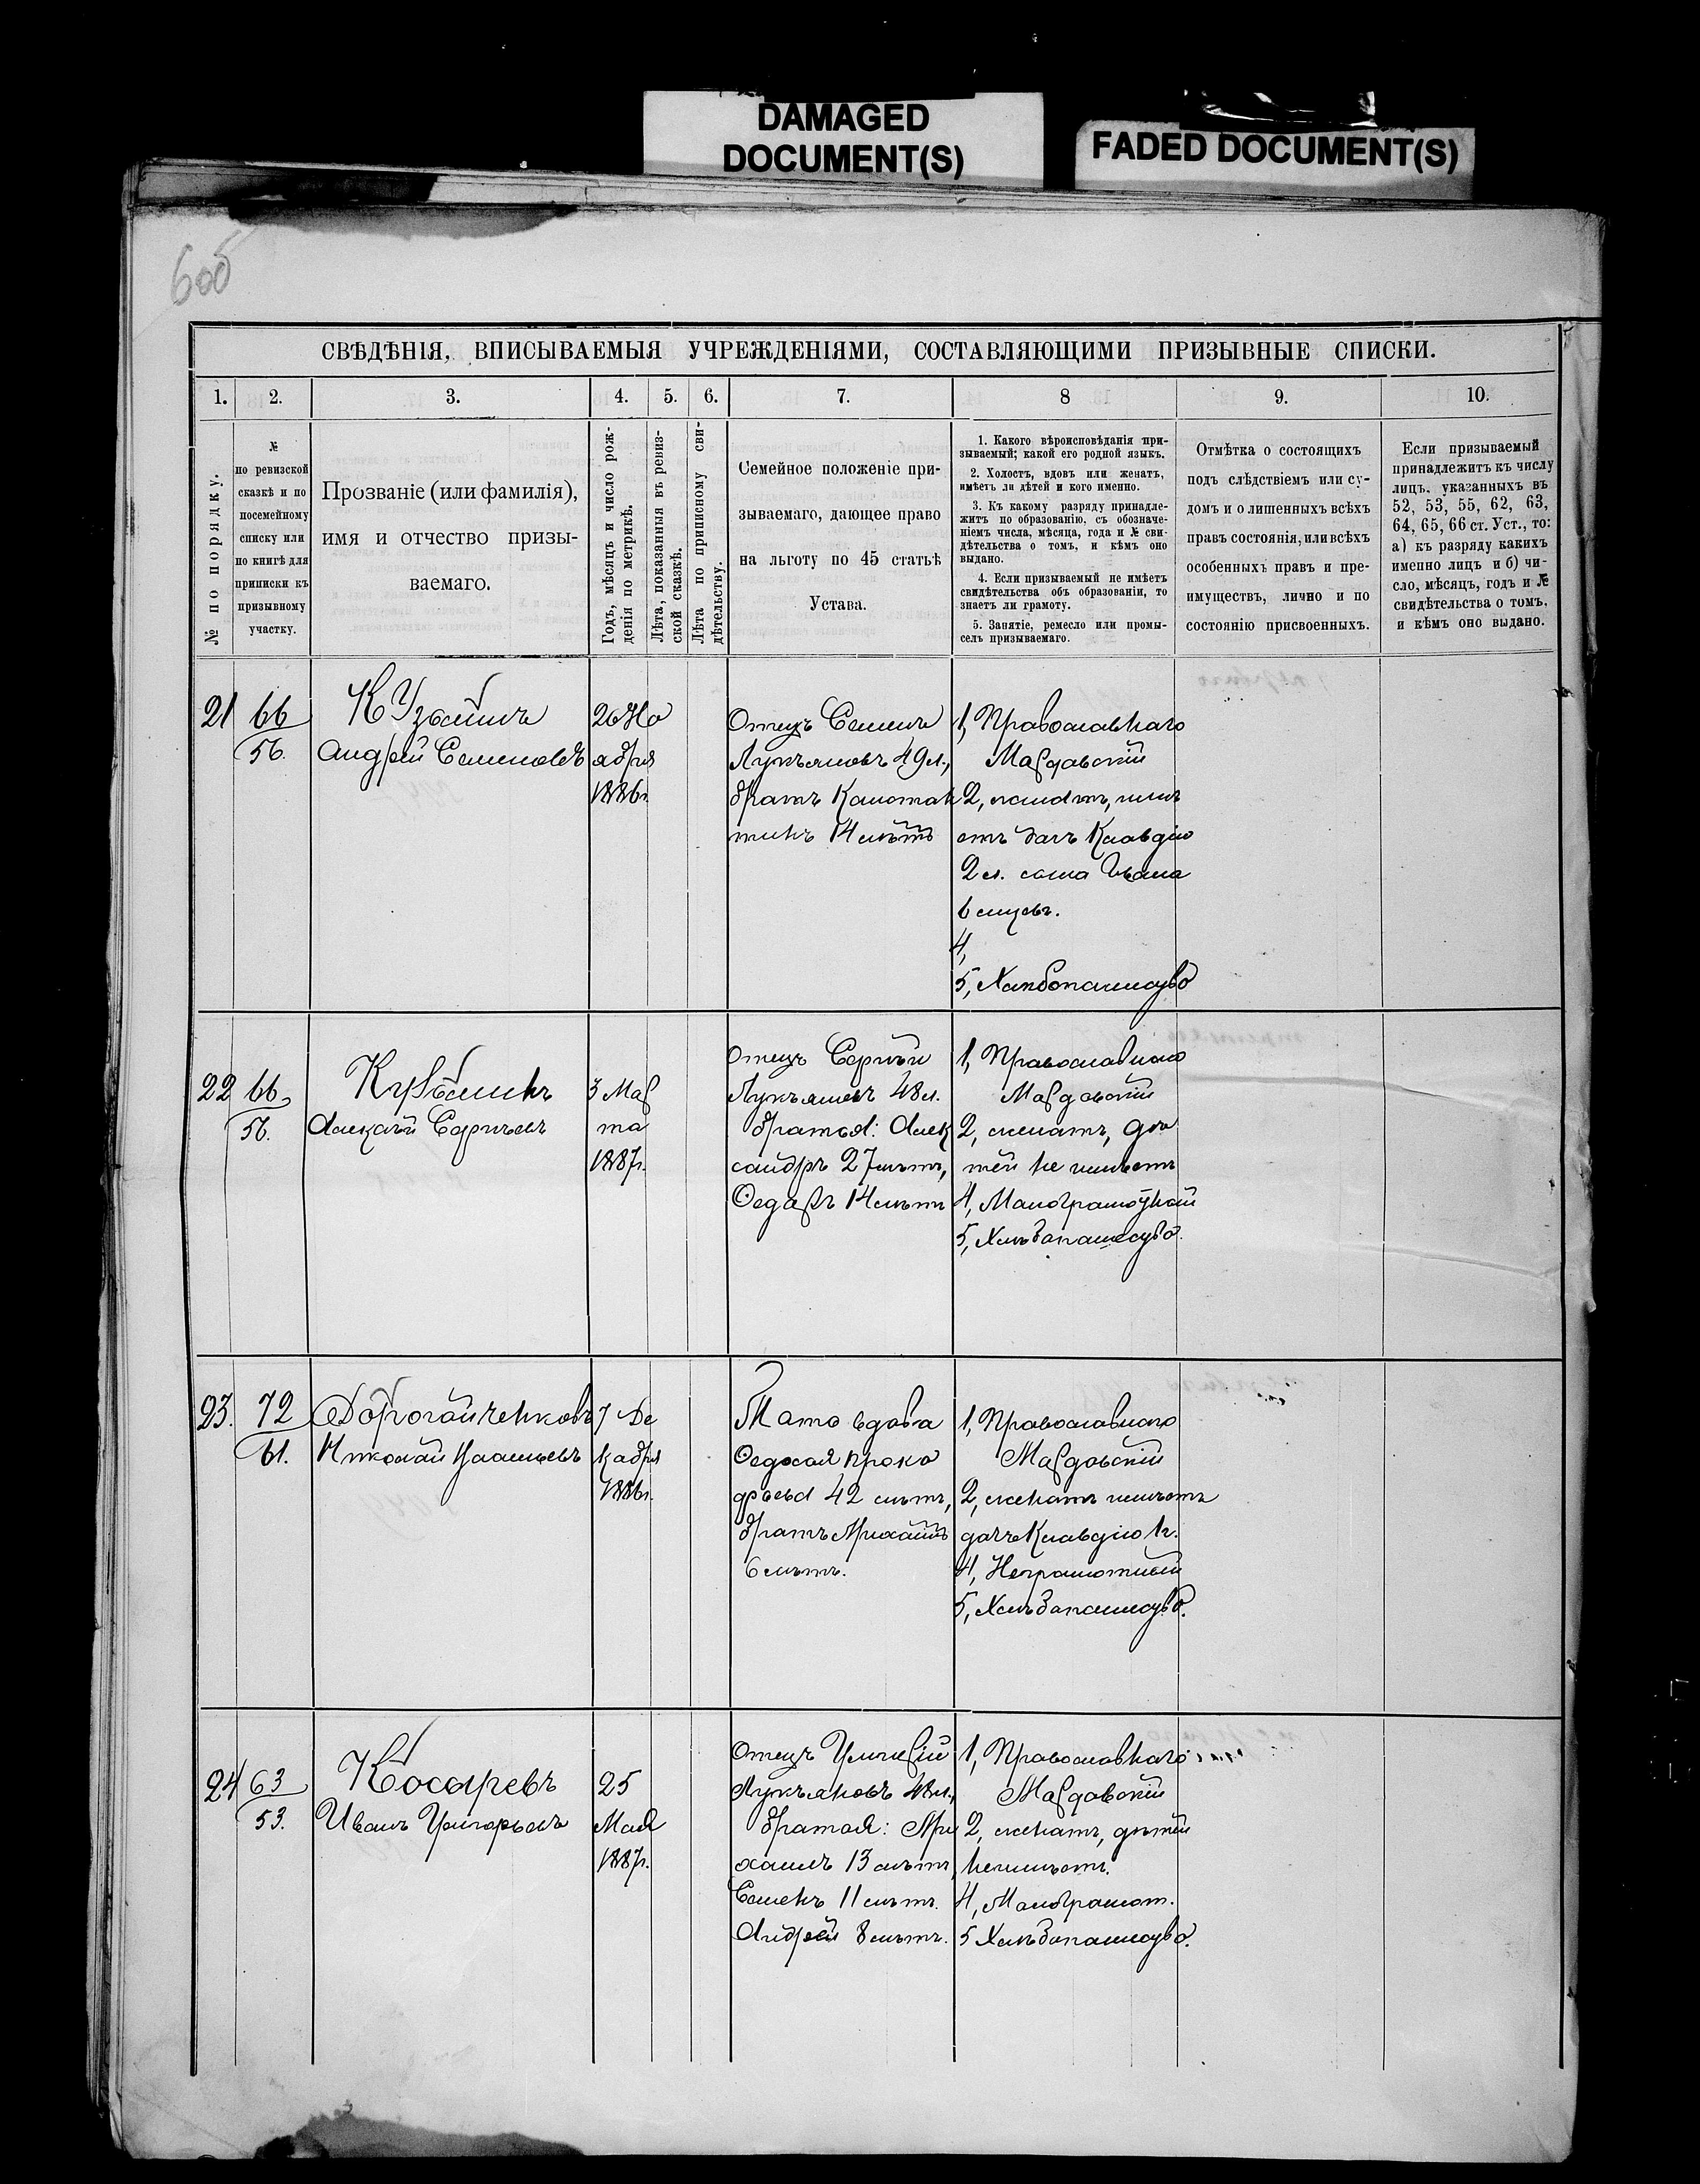 DAMAGED
DOCUMENT(S)
FADED DOCUMENT(S)
СВѢДѢНІЯ, ВПИСЫВАЕМЫЯ УЧРЕЖДЕНІЯМИ, СОСТАВЛЯЮЩИМИ ПРИЗЫВНЫЕ СПИСКИ.
1. 2. 3. 4. 5. 6. 7. 8 9. 10.
№ по порядку.
№
по ревизской
сказкѣ и по
посемейному
списку или
по книгѣ для
приписки къ
призывному
участку.
Прозваніе (или фамилія),
имя и отчество призы-
ваемаго.
Годъ, мѣсяцъ и число рож-
денія по метрикѣ.
Лѣта, показанныя въ ревиз-
ской сказкѣ.
Лѣта по приписному сви-
дѣтельству.
Семейное положеніе при-
зываемаго, дающее право
на льготу по 45 статьѣ
Устава.
1. Какого вѣроисповѣданія при-
зываемый; какой его родной языкъ.
2. Холостъ, вдовъ или женатъ,
имѣетъ ли дѣтей и кого именно.
3. Къ какому разряду принадле-
житъ по образованію, съ обозначе-
ніемъ числа, мѣсяца, года и № сви-
дѣтельства о томъ, и кѣмъ оно
выдано.
4. Если призываемый не имѣетъ
свидѣтельства объ образованіи, то
знаетъ ли грамоту.
5. Занятіе, ремесло или промы-
селъ призываемаго.
Отмѣтка о состоящихъ
подъ слѣдствіемъ или су-
домъ и о лишенныхъ всѣхъ
правъ состоянія, или всѣхъ
особенныхъ правъ и пре-
имуществъ, лично и по
состоянію присвоенныхъ.
Если призываемый
принадлежитъ къ числу
лицъ, указанныхъ въ
52, 53, 55, 62, 63,
64, 65, 66 ст. Уст., то:
а) къ разряду какихъ
именно лицъ и б) чи-
сло, мѣсяцъ, годъ и №
свидѣтельства о томъ,
и кѣмъ оно выдано.
21
66
56.
Андрей Семеновъ
26 Но
ября
1886г.
Отецъ Семенъ
Лукьяновъ 49л.,
братъ Констан
тинъ 14 лѣтъ
1, Православнаго
Мордовскій
2, женатъ, имѣ
етъ дочь Клавдію
2 л. сына Ивана
6 мѣсяц.
4,
5, Хлѣбопашество
22
66
56.
Алексѣй Сергѣевъ
3 Мар
та
1887г.
Отецъ Сергѣй
Лукьяновъ 48л.
братья: Алек
сандръ 27 лѣтъ,
Ѳедоръ 14 лѣтъ
1, Православнаго
Мордовскій
2, женатъ, дѣ
тей не имѣетъ
4, Малограмотный
5, Хлѣбопашество.
23.
72
61.
Дорогойченковъ
Николай
7 Де
кабря
1886г.
Мать вдова
Ѳедосья Проко
фьева 42 лѣтъ,
братъ Михаилъ
6 лѣтъ.
1, Православнаго
Мордовскій
2, женатъ имѣетъ
дочь Клавдію
4, Неграмотный
5, Хлѣбопашество.
24
63
53.
Косыревъ
Иванъ Григорьевъ
25
Мая
1887г.
Отецъ Григорій
Лукьяновъ 48л.,
братья: Ми
хаилъ 13 лѣтъ,
Семенъ 11 лѣтъ.
Андрей 8 лѣтъ.
1, Православнаго
Мордовскій
2, женатъ, дѣтей
неимѣетъ.
4, Малограмот.
5 Хлѣбопашество.